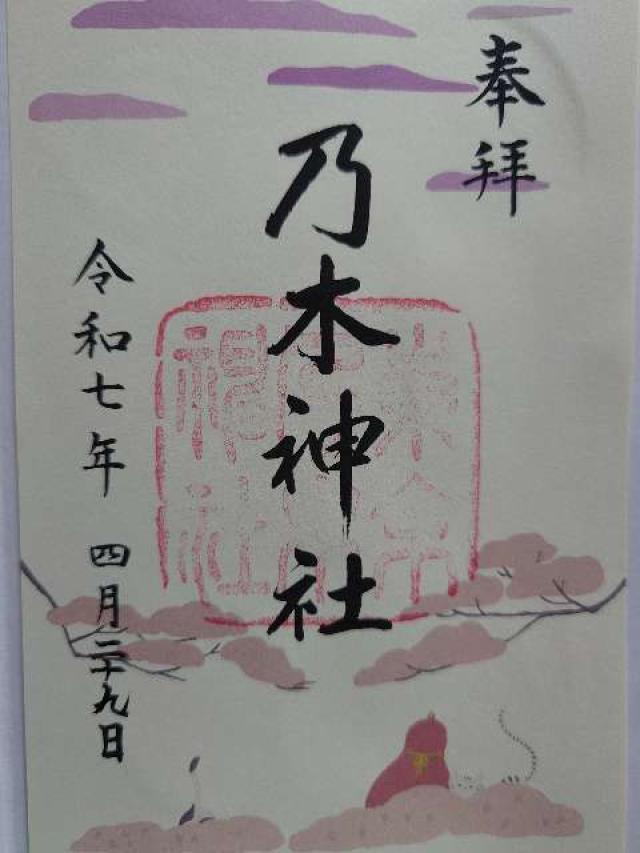 奉拝
乃木神社
令和七年 四月二十九日